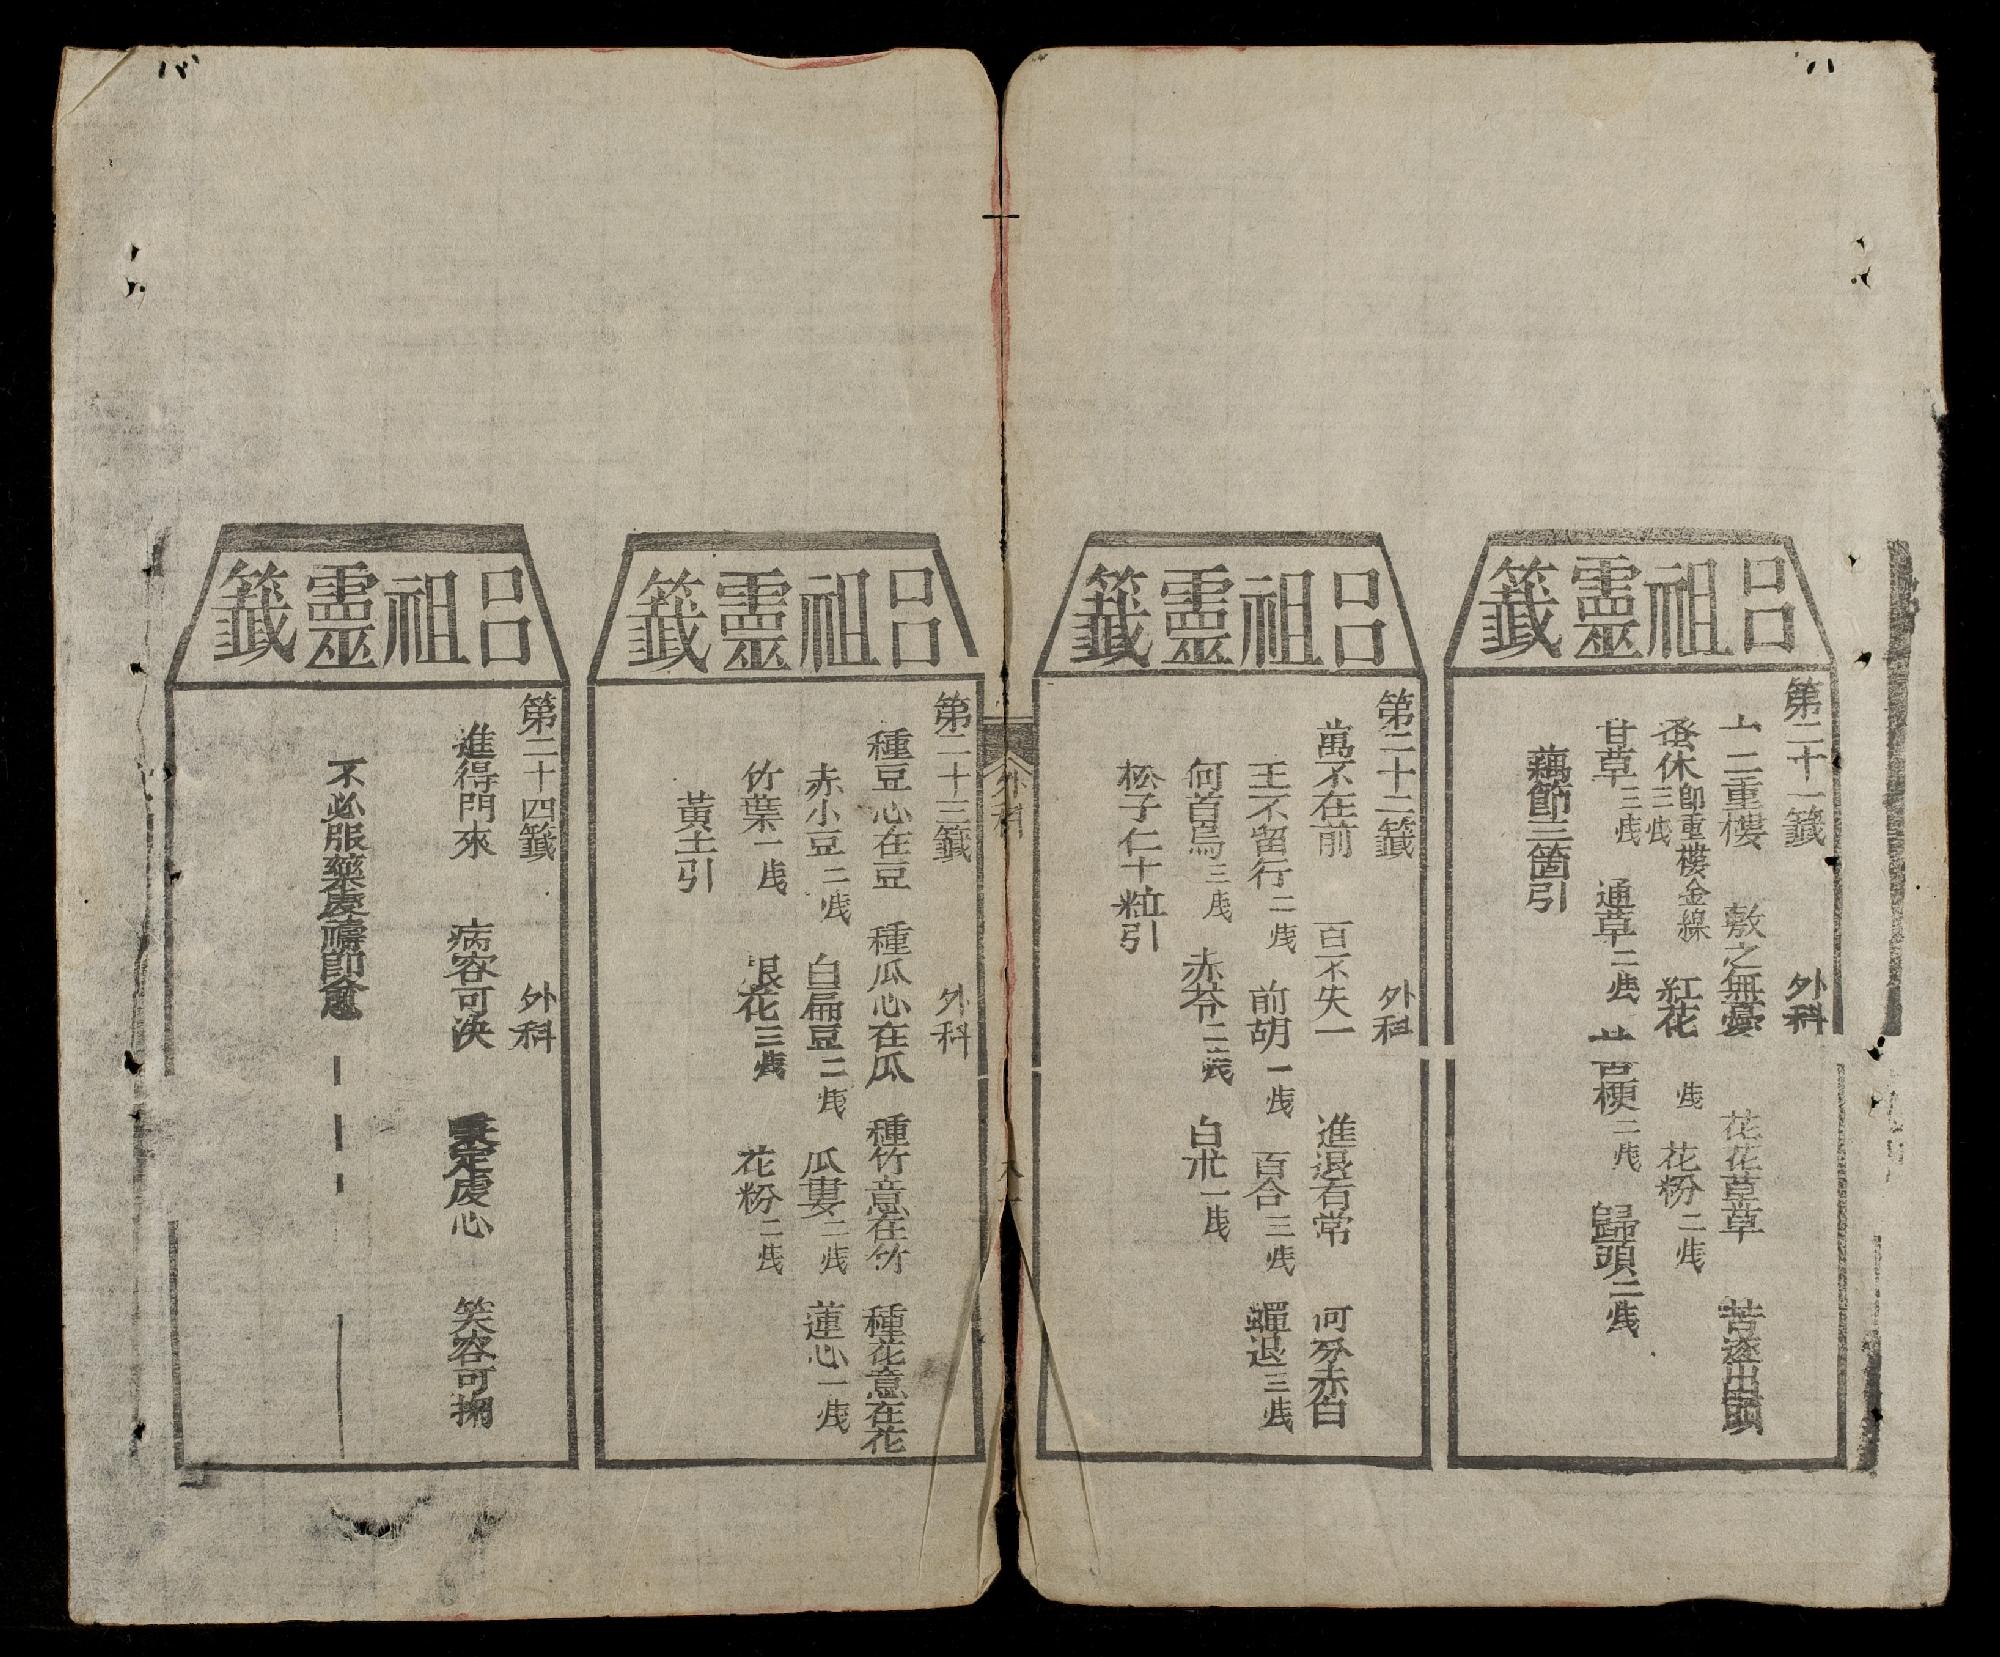 呂祖靈籤
第二十一籤 外科
十二重樓 敷之無憂 花花草草 苦遂出頭
蚤休三戋 即重樓金線 紅花 戋 花粉二戋
甘草三戋 通草二戋 苦梗二戋 歸頭二戋
藕節三箇引
呂祖靈籤
第二十二籤 外科
萬不在前 百不失一 進退有常 何分赤白
王不留行二戋 前胡一戋 百合三戋 蟬退三戋
何首烏三戋 赤苓二戋 白朮一戋
松子仁十粒引
外科
呂祖靈籤
第二十三籤 外科
種豆心在豆 種瓜心在瓜 種竹意在竹 種花意在花
赤小豆二戋 白扁豆二戋 瓜婁二戋 蓮心一戋
竹葉一戋 退花三戋 花粉二戋
黃土引
呂祖靈籤
第二十四籤 外科
進得門來 病容可决 定虔心 笑容可掬
不必服藥虔禱即愈